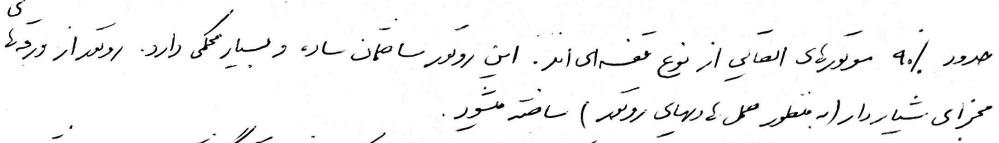 حدود ۹۰٪ موتورهای القایی از نوع قفسه‌ای اند. این روتور ساختمان ساده و بسیار محکمی دارد. روتور از ورقهای
مجزای شیاردار (به منظور حمل هادیهای روتور) ساخته میشود.